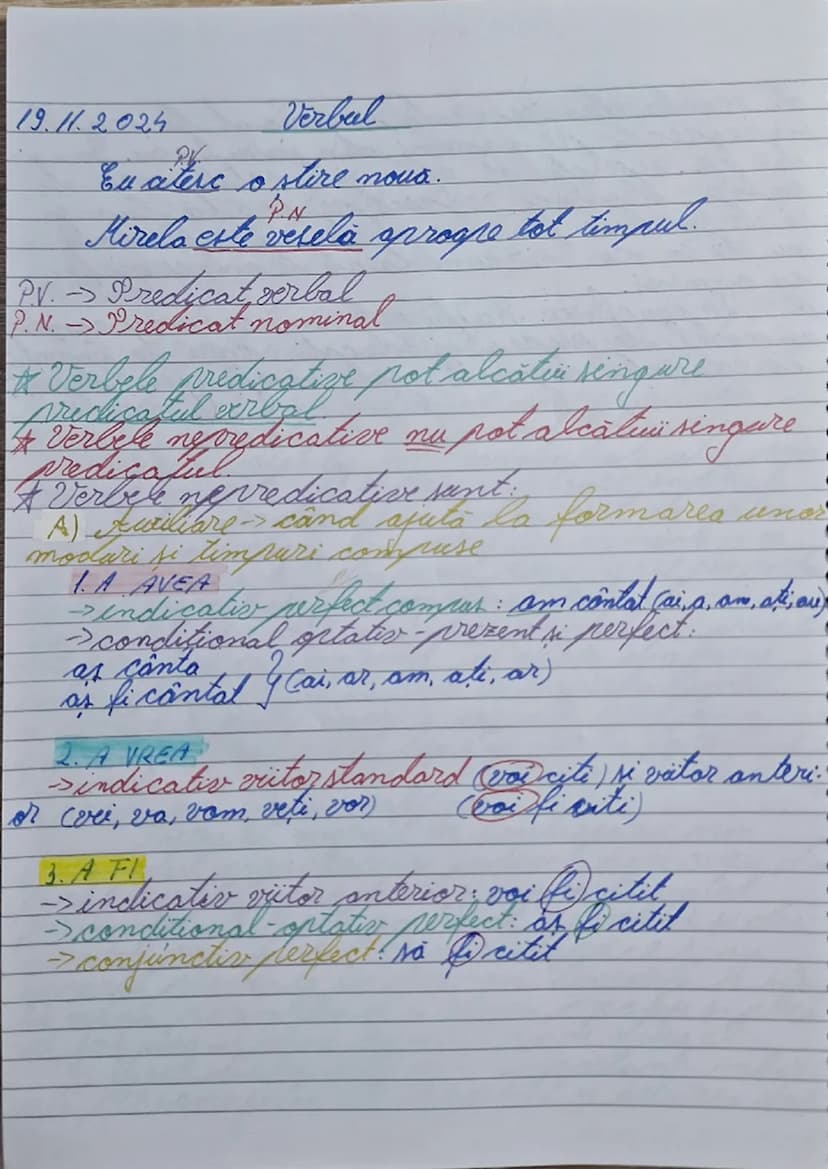 19.11.2024 Verbul
P.V.
Eu citesc o stire nouă.
P N
Mirela este veselă aproape tot timpul.
P.V. -> Predicat verbal
P.N. -> Predicat nominal
* Verbele predicative pot alcătui singure
predicatul verbal.
* Verbele nepredicative nu pot alcătui singure
predicatul.
* Verbele nepredicative sunt:
A) Auxiliare -> când ajută la formarea unor
moduri și timpuri compuse
1. A AVEA
-> indicativ perfect compus: am cântat (ai, a, am, ați, au)
-> condițional optativ - prezent și perfect:
aș cânta
aș fi cântat } (ai, ar, am, ați, ar)
2. A VREA
-> indicativ viitor standard (voi citi) și viitor anteri-
or (vei, va, vom, veți, vor) (voi fi citi)
3. A FI
-> indicativ viitor anterior: voi fi citit
-> condițional-optativ perfect: aș fi citit
-> conjunctiv perfect: să fi citit